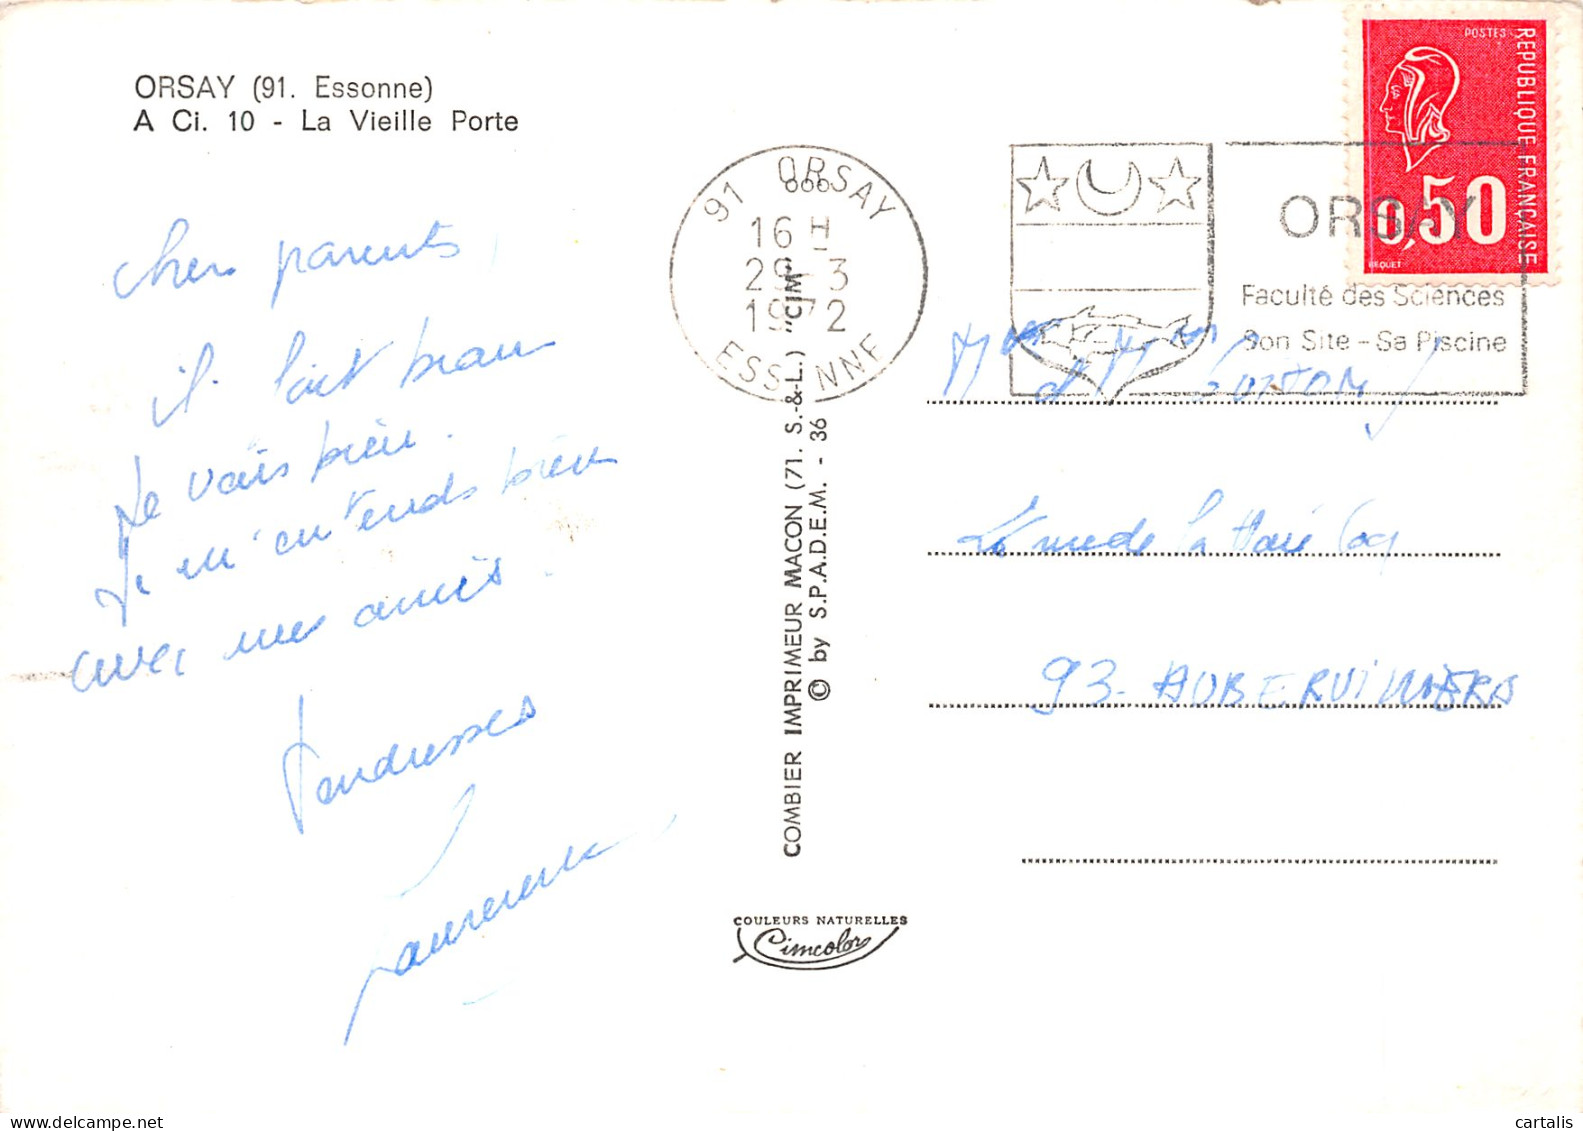 ORSAY (91. Essonne)
A Ci. 10 - La Vieille Porte
cher parents,
il fait beau
Je vais bien.
Je m'entends bien
avec mes amis.
Tendresses
Laurence
91 ORSAY
16 H
29-3
1972
ESSONNE
ORSAY
Faculté des Sciences
Son Site - Sa Piscine
POSTES
REPUBLIQUE FRANÇAISE
0,50
BEQUET
M et M
rue de la Coq
93. AUBERVILLIERS
COMBIER IMPRIMEUR MACON (71. S.-&-L.) "CIM"
© by S.P.A.D.E.M. - 36
COULEURS NATURELLES
Cimcolor
delcampe.net
cartalis